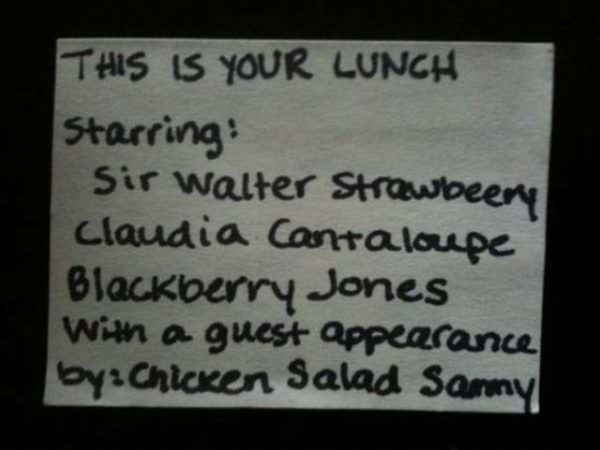 THIS IS YOUR LUNCH
Starring:
Sir Walter Strawbeery
Claudia Cantaloupe
Blackberry Jones
With a guest appearance
by: Chicken Salad Sammy